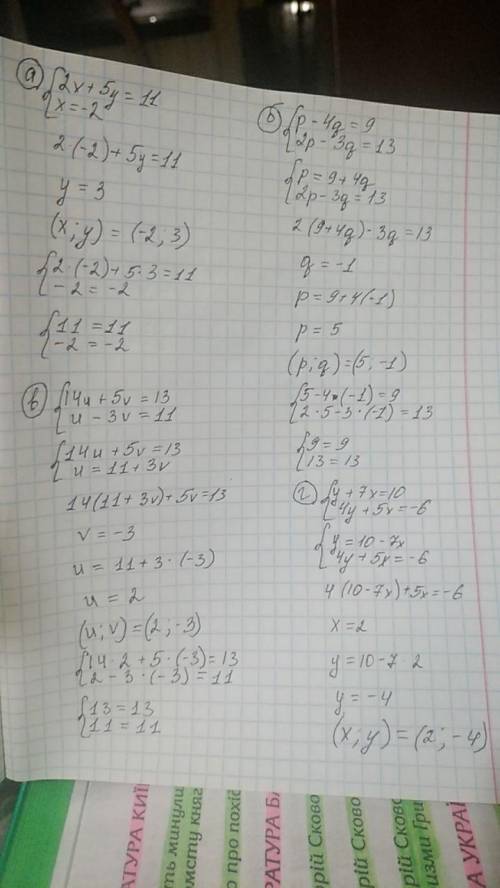 а) {2x + 5y = 11
{x = -2
2·(-2) + 5y = 11
y = 3
(x; y) = (-2; 3)
{2·(-2) + 5·3 = 11
{-2 = -2
{11 = 11
{-2 = -2
б) {p - 4q = 9
{2p - 3q = 13
{p = 9 + 4q
{2p - 3q = 13
2(9 + 4q) - 3q = 13
q = -1
p = 9 + 4(-1)
p = 5
(p; q) = (5; -1)
{5 - 4·(-1) = 9
{2·5 - 3·(-1) = 13
{9 = 9
{13 = 13
в) {14u + 5v = 13
{u - 3v = 11
{14u + 5v = 13
{u = 11 + 3v
14(11 + 3v) + 5v = 13
v = -3
u = 11 + 3·(-3)
u = 2
(u; v) = (2; -3)
{14·2 + 5·(-3) = 13
{2 - 3·(-3) = 11
{13 = 13
{11 = 11
г) {y + 7x = 10
{4y + 5x = -6
{y = 10 - 7x
{4y + 5x = -6
4(10 - 7x) + 5x = -6
x = 2
y = 10 - 7 2
y = -4
(x; y) = (2; -4)
РАТУРА КИЇ
ть минули
ромсту княг
о про похід
РАТУРА БА
орій Сково
рій Сково
орій Сково
измми Гри
А УКРАЇ